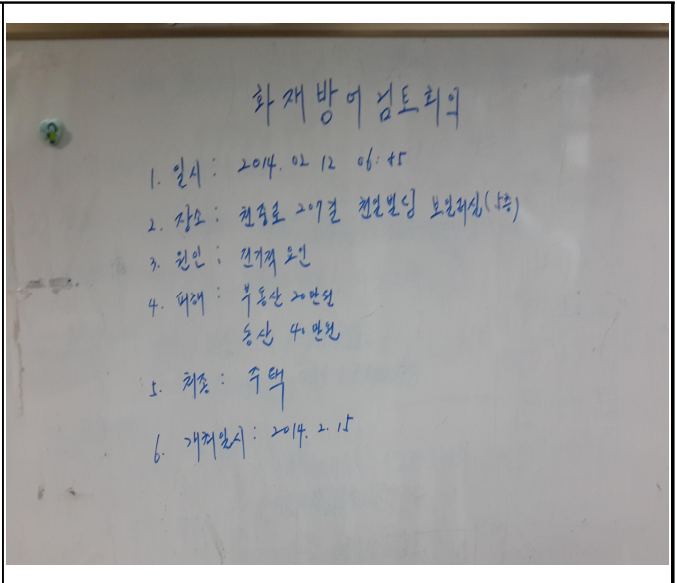 화재방어검토회의
1. 일시 : 2014. 02 12 06:45
2. 장소 : 천중로 207길 천일빌딩 보일러실(5층)
3. 원인 : 전기적 요인
4. 피해 : 부동산 20만원
동산 40만원
5. 처종 : 주택
6. 개최일시 : 2014. 2. 15